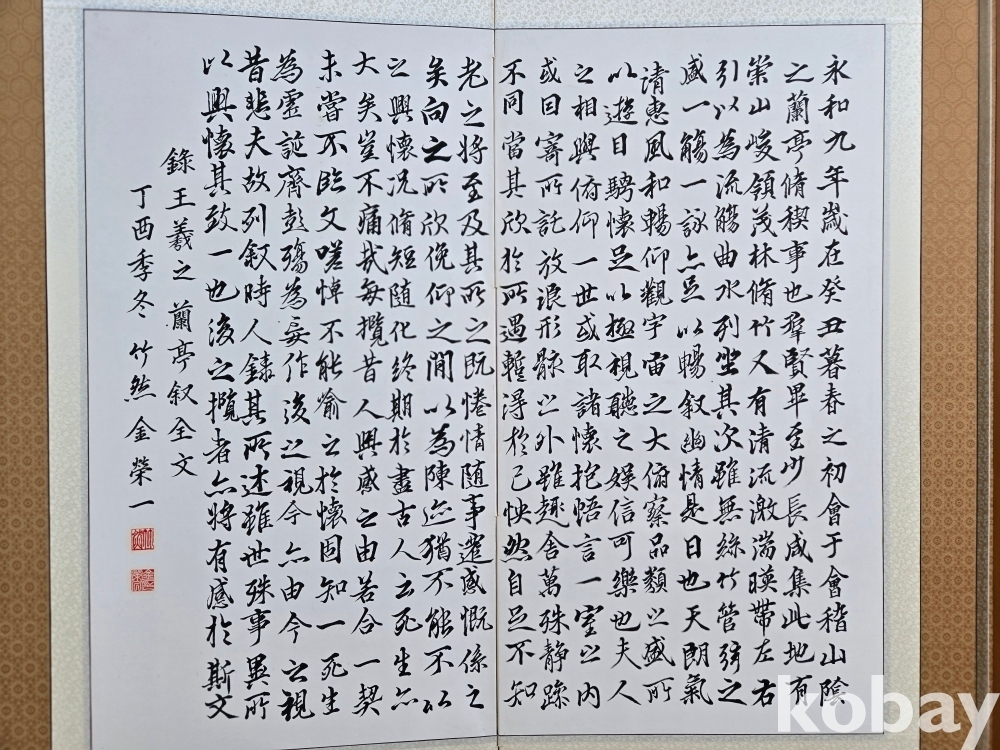 永和九年歲在癸丑暮春之初會于會稽山陰
之蘭亭脩稧事也羣賢畢至少長咸集此地有
崇山峻領茂林脩竹又有清流激湍暎帶左右
引以為流觴曲水列坐其次雖無絲竹管弦之
盛一觴一詠亦足以暢叙幽情是日也天朗氣
清惠風和暢仰觀宇宙之大俯察品類之盛所
以遊目騁懷足以極視聽之娛信可樂也夫人
之相與俯仰一世或取諸懷抱悟言一室之內
或因寄所託放浪形骸之外雖趣舍萬殊静躁
不同當其欣於所遇蹔得於己怏然自足不知
老之將至及其所之既惓情隨事遷感慨係之
矣向之所欣俛仰之間以為陳迹猶不能不以
之興懷況脩短隨化終期於盡古人云死生亦
大矣豈不痛哉每攬昔人興感之由若合一契
未嘗不臨文嗟悼不能喻之於懷固知一死生
為虛誕齊彭殤為妄作後之視今亦由今之視
昔悲夫故列叙時人錄其所述雖世殊事異所
以興懷其致一也後之攬者亦將有感於斯文
錄王羲之蘭亭叙全文
丁酉季冬 竹然 金榮一
kobay